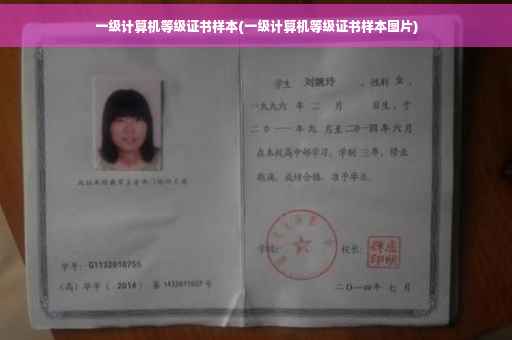 一级计算机等级证书样本(一级计算机等级证书样本图片)
学生 刘婉玲 ，性别 女 ，
一九九六 年 二 月 日生，于
二〇一一 年 九 月至 二〇一四 年 六 月
在本校高中部学习，学制 三 年，修业
期满，成绩合格，准予毕业。
学号: G1132010755
(高) 毕字 ( 2014 ) 第 1432011027 号
学校:
校长:
二〇一四年 七 月